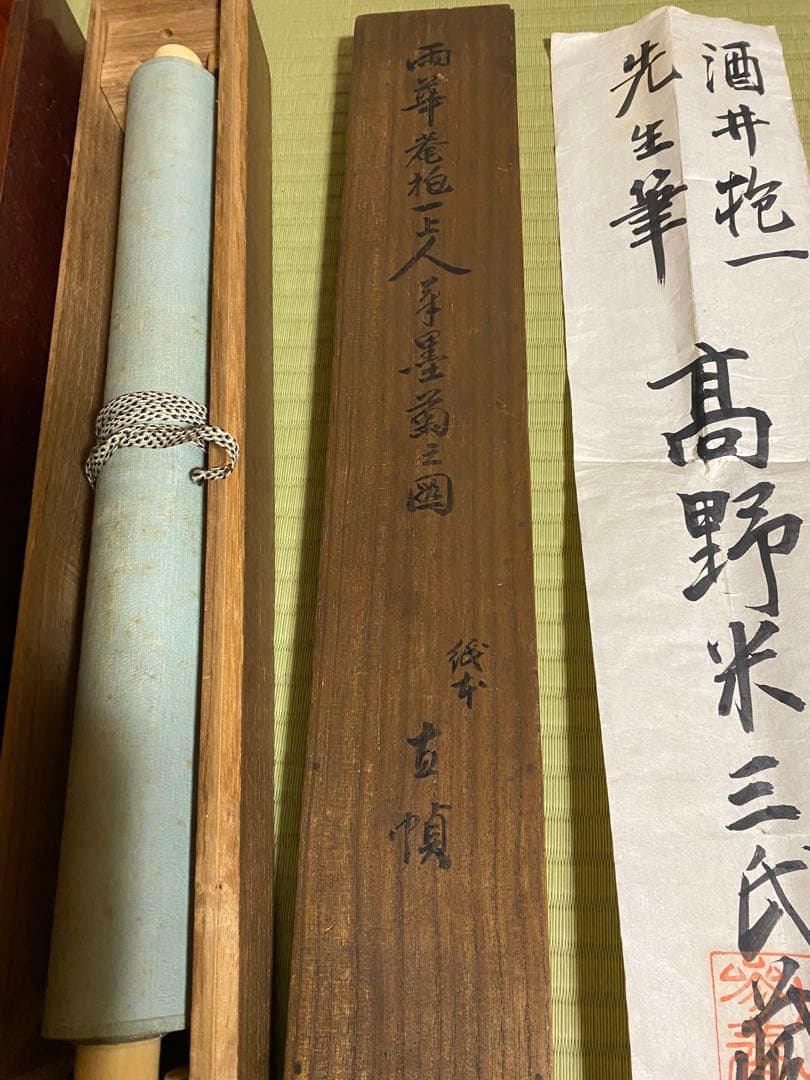 酒井抱一
先生筆
髙野米三氏
雨華菴抱一上人筆墨菊之圖
紙本
直幀